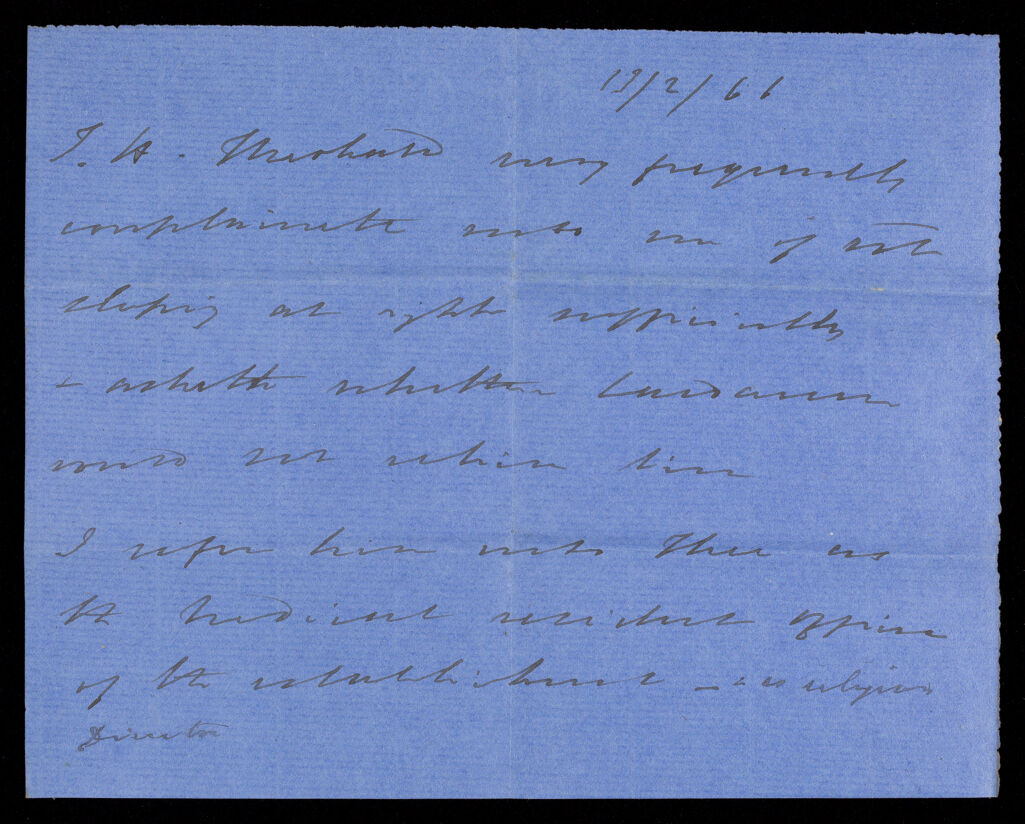 17/2/66
T. H. very frequently
complaineth unto me of not
sleeping at night sufficiently
& asketh whether Laudanum
would not relieve him
I refer him unto Thee as
the Medical resident Officer
of the establishment - & as religious
Director